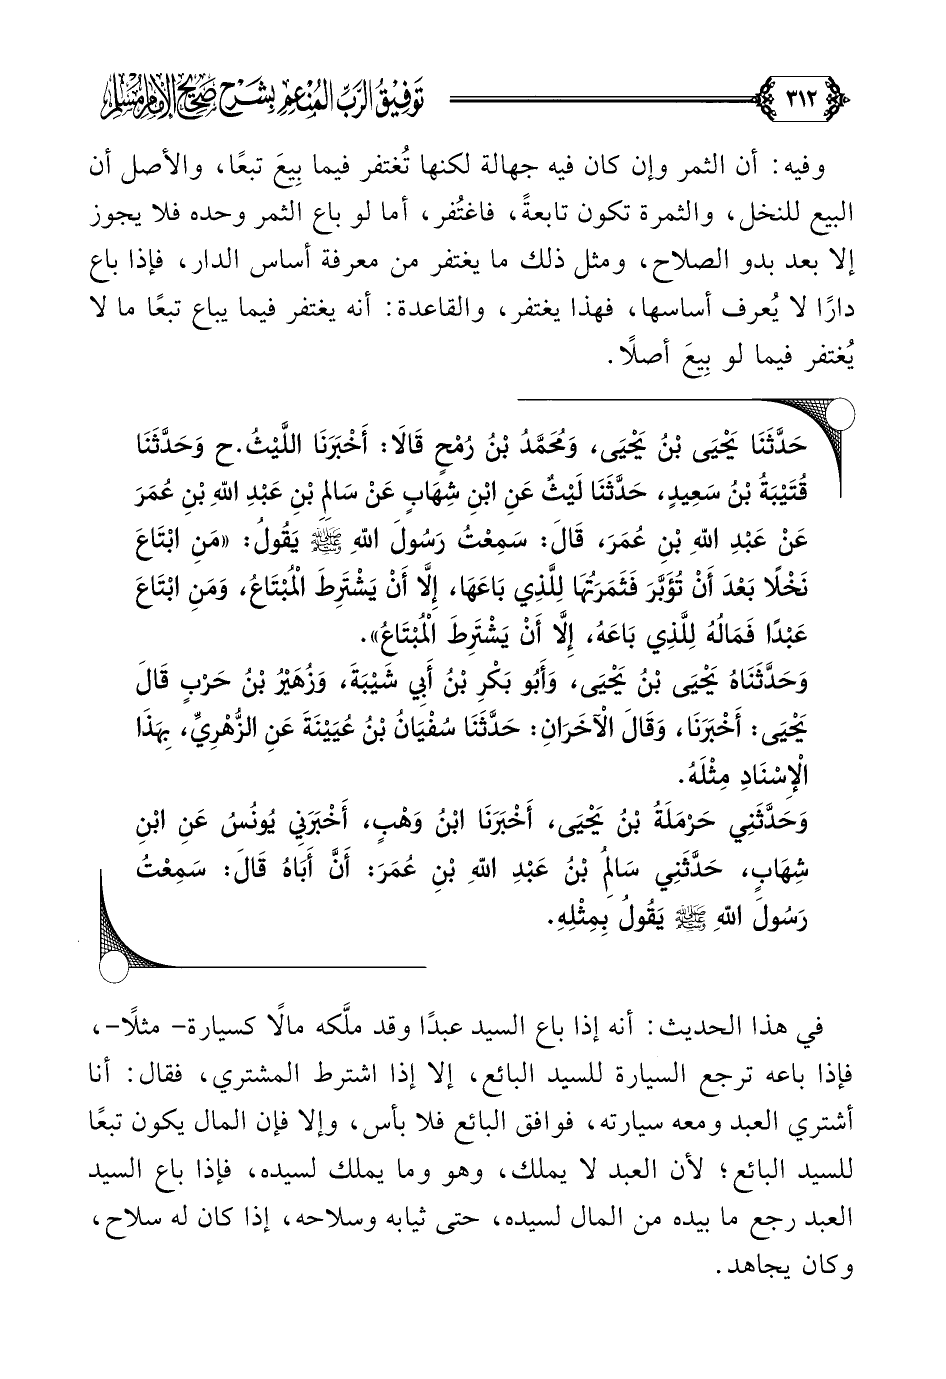 ٣١٢ توفيق الرب المنعم بشرح صحيح الإمام مسلم
وفيه: أن الثمر وإن كان فيه جهالة لكنها تُغتفر فيما بِيعَ تبعًا، والأصل أن
البيع للنخل، والثمرة تكون تابعةً، فاغتُفر، أما لو باع الثمر وحده فلا يجوز
إلا بعد بدو الصلاح، ومثل ذلك ما يغتفر من معرفة أساس الدار، فإذا باع
دارًا لا يُعرف أساسها، فهذا يغتفر، والقاعدة: أنه يغتفر فيما يباع تبعًا ما لا
يُغتفر فيما لو بِيعَ أصلًا.
حَدَّثَنَا يَحْيَى بْنُ يَحْيَى، وَمُحَمَّدُ بْنُ رُمْحٍ قَالَا: أَخْبَرَنَا اللَّيْثُ. ح وَحَدَّثَنَا
قُتَيْبَةُ بْنُ سَعِيدٍ، حَدَّثَنَا لَيْثٌ عَنِ ابْنِ شِهَابٍ عَنْ سَالِمِ بْنِ عَبْدِ اللهِ بْنِ عُمَرَ
عَنْ عَبْدِ اللهِ بْنِ عُمَرَ، قَالَ: سَمِعْتُ رَسُولَ اللهِ ﷺ يَقُولُ: «مَنِ ابْتَاعَ
نَخْلًا بَعْدَ أَنْ تُؤَبَّرَ فَثَمَرَتُهَا لِلَّذِي بَاعَهَا، إِلَّا أَنْ يَشْتَرِطَ الْمُبْتَاعُ، وَمَنِ ابْتَاعَ
عَبْدًا فَمَالُهُ لِلَّذِي بَاعَهُ، إِلَّا أَنْ يَشْتَرِطَ الْمُبْتَاعُ».
وَحَدَّثَنَاهُ يَحْيَى بْنُ يَحْيَى، وَأَبُو بَكْرِ بْنُ أَبِي شَيْبَةَ، وَزُهَيْرُ بْنُ حَرْبٍ قَالَ
يَحْيَى: أَخْبَرَنَا، وَقَالَ الْآخَرَانِ: حَدَّثَنَا سُفْيَانُ بْنُ عُيَيْنَةَ عَنِ الزُّهْرِيِّ، بِهَذَا
الْإِسْنَادِ مِثْلَهُ.
وَحَدَّثَنِي حَرْمَلَةُ بْنُ يَحْيَى، أَخْبَرَنَا ابْنُ وَهْبٍ، أَخْبَرَنِي يُونُسُ عَنِ ابْنِ
شِهَابٍ، حَدَّثَنِي سَالِمُ بْنُ عَبْدِ اللهِ بْنِ عُمَرَ: أَنَّ أَبَاهُ قَالَ: سَمِعْتُ
رَسُولَ اللهِ ﷺ يَقُولُ بِمِثْلِهِ.
في هذا الحديث: أنه إذا باع السيد عبدًا وقد ملَّكه مالًا كسيارة- مثلًا-،
فإذا باعه ترجع السيارة للسيد البائع، إلا إذا اشترط المشتري، فقال: أنا
أشتري العبد ومعه سيارته، فوافق البائع فلا بأس، وإلا فإن المال يكون تبعًا
للسيد البائع؛ لأن العبد لا يملك، وهو وما يملك لسيده، فإذا باع السيد
العبد رجع ما بيده من المال لسيده، حتى ثيابه وسلاحه، إذا كان له سلاح،
وكان يجاهد.